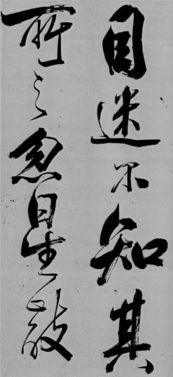 目迷不知其
所之忽星散